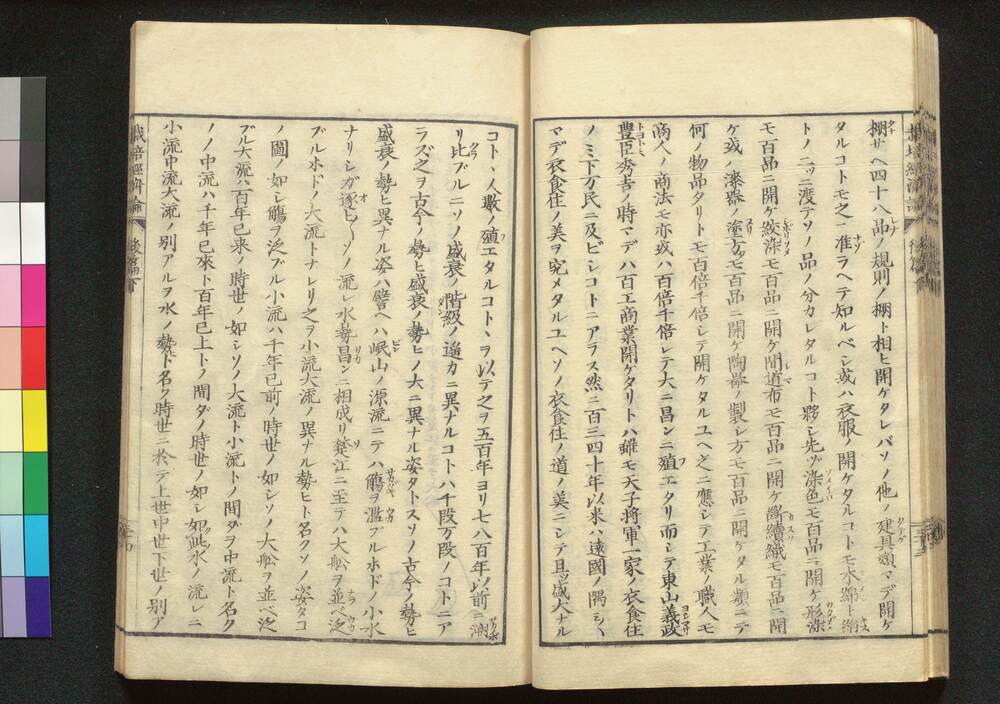 棚サヘ四十八品ノ規則ノ棚ト相ヒ開ケタレバソノ他ノ建具類マデ開ケ
タルコトモ之ニ准ラヘテ知ルベシ或ハ衣服ノ開ケタルコトモ木綿ト絹
トノ二ツニ渡テソノ品ノ分カレタルコト夥シ先ヅ染色モ百品ニ開ケ形染
モ百品ニ開ケ絞染モ百品ニ開ケ間道布モ百品ニ開ケ纃織モ百品ニ開
ケ或ハ漆器ノ塗方モ百品ニ開ケ陶器ノ製シ方モ百品ニ開ケタル類ニテ
何ノ物品タリトモ百倍千倍シテ開ケタルユヘ之ニ應シテ工業ノ職人モ
商人ノ商法モ亦或ハ百倍千倍シテ大ニ昌ンニ殖エタリ而シテ東山義政
豊臣秀吉ノ時マデハ百工商業開ケタリトハ雖モ天子將軍一家ノ衣食住
ノミ下万民ニ及ビシコトニアラス然ニ百三四十年以来ハ遠國ノ隅〻
マデ衣食住ノ美ヲ究メタルユヘソノ衣食住ノ道ノ美ニシテ且ッ盛大ナル
コトヽ人数ノ殖エタルコトヽヲ以テ之ヲ五百年ヨリ七八百年以前ニ溯
リ比ブルニソノ盛衰ノ階級ノ遥カニ異ナルコトハ千段万段ノコトニア
ラズ之ヲ古今ノ勢ヒ盛衰ノ勢ヒノ大ニ異ナル姿タトスソノ古今ノ勢ヒ
盛衰ノ勢ヒ異ナル姿ハ譬ヘハ岷山ノ源流ニテハ觴ヲ濫ブルホドノ小水
ナリシガ逐ヒ〳〵ソノ流レ水勢昌ンニ相成リ楚江ニ至テハ大舩ヲ並ベ泛
ブルホドノ大流トナレリ之ヲ小流大流ノ異ナル勢ヒト名クソノ姿タコ
ノ圖ノ如シ觴ヲ泛ブル小流ハ千年已前ノ時世ノ如シソノ大舩ヲ並ベ泛
ブル大流ハ百年已来ノ時世ノ如シソノ大流ト小流トノ間ダヲ中流ト名ク
ソノ中流ハ千年已來ト百年已上トノ間ダノ時世ノ如シ如此水ノ流レニ
小流中流大流ノ別アルヲ水ノ勢ト名ク時世ニ於テ上世中世下世ノ別ア
栽培經濟論
後篇下